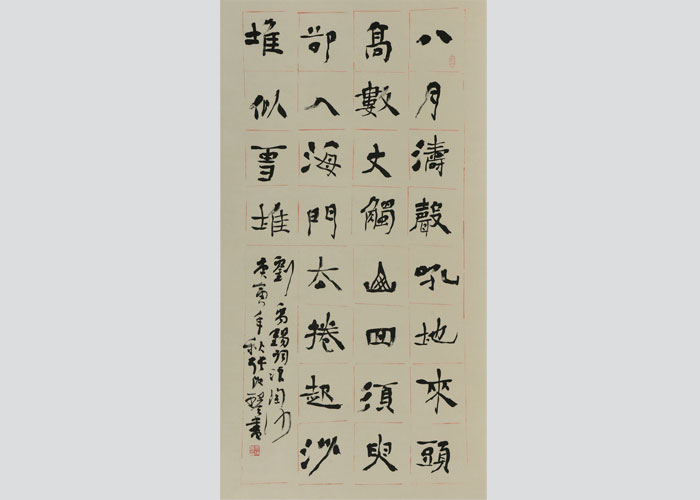 八月濤聲吼地來頭
高數丈觸山回須臾
卻入海門去捲起沙
堆似雪堆
劉禹錫詞浪淘沙
庚寅年秋張書